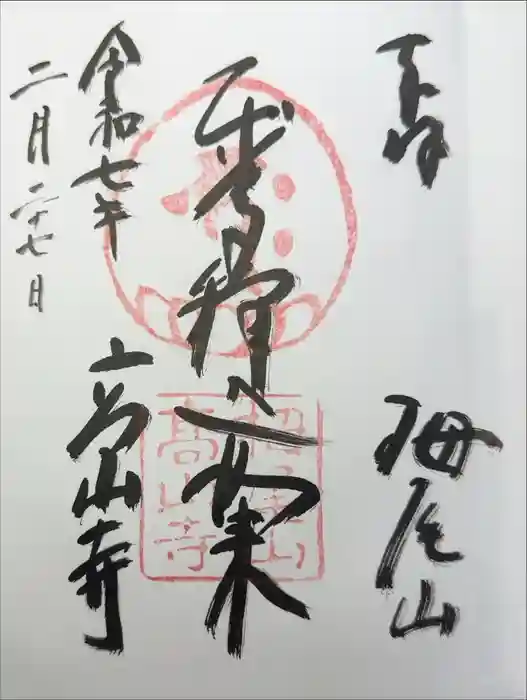 奉拝
栂尾山
釋迦如来
高山寺
令和七年
二月二十七日
栂尾山
高山寺